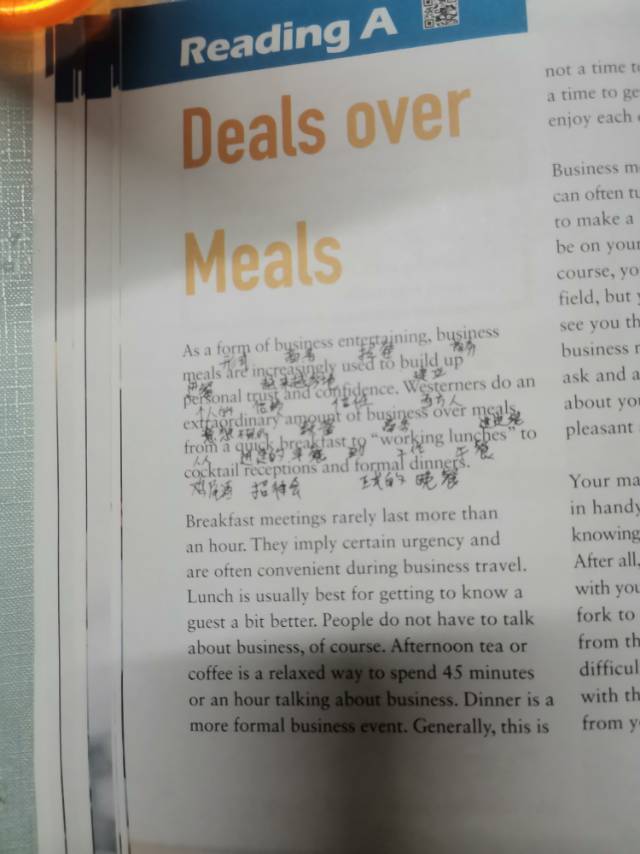 Reading A
Deals over
Meals
As a form of business entertaining, business
形式 商务 招待 商务
meals are increasingly used to build up
用餐 建立
personal trust and confidence. Westerners do an
个人的 信赖 信任 西方人
extraordinary amount of business over meals,
商务
from a quick breakfast to "working lunches" to
从 早餐 到 工作 午餐
cocktail receptions and formal dinners.
鸡尾酒 招待会 正式的 晚餐
Breakfast meetings rarely last more than
an hour. They imply certain urgency and
are often convenient during business travel.
Lunch is usually best for getting to know a
guest a bit better. People do not have to talk
about business, of course. Afternoon tea or
coffee is a relaxed way to spend 45 minutes
or an hour talking about business. Dinner is a
more formal business event. Generally, this is
not a time to
a time to ge
enjoy each
Business m
can often tu
to make a
be on your
course, yo
field, but y
see you th
business m
ask and a
about you
pleasant
Your ma
in handy
knowing
After all,
with you
fork to
from th
difficul
with th
from y